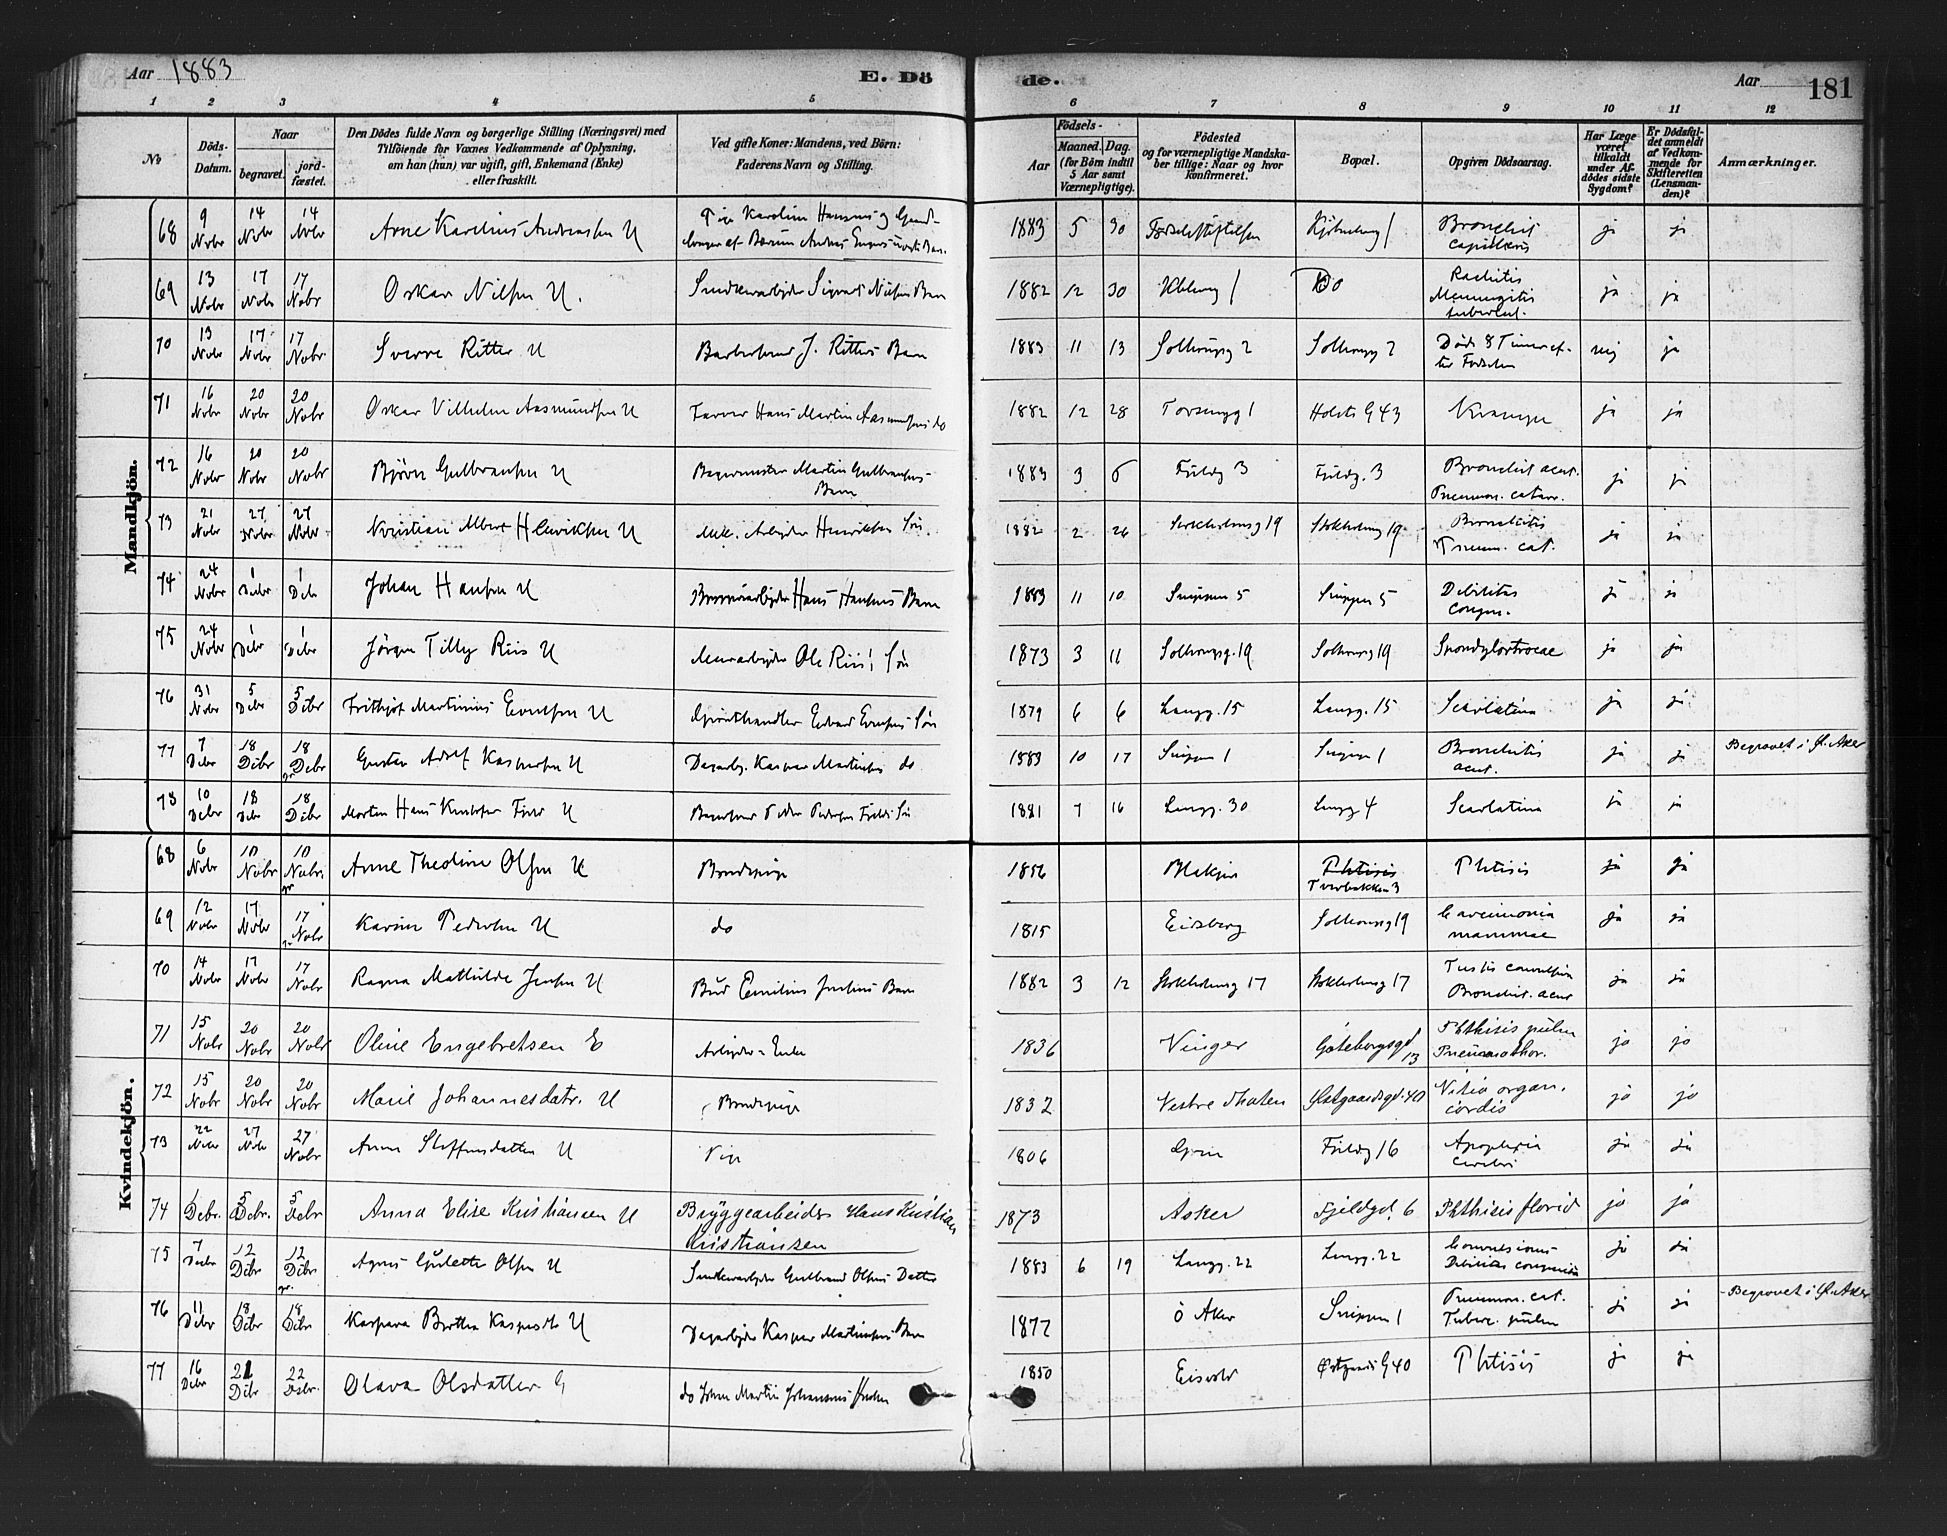 Aar 1883
E. Dö
de.
Aar
181
1 2 3 4 5 6 7 8 9 10 11 12
No
Döds-
Datum.
Naar
begravet.
jord-
fæstet.
Den Dödes fulde Navn og borgerlige Stilling (Næringsvei) med
Tilföiende for Voxnes Vedkommende af Oplysning,
om han (hun) var ugift, gift, Enkemand (Enke)
eller fraskilt.
Ved gifte Koner: Mandens, ved Börn:
Faderens Navn og Stilling.
Födsels-
Aar
Maaned. Dag.
(for Börn indtil
5 Aar samt
Værnepligtige).
Födested
og for værnepligtige Mandska-
ber tillige: Naar og hvor
konfirmeret.
Bopæl.
Opgiven Dödsaarsag.
Har Læge
været
tilkaldt
under Af-
dödes sidste
Sygdom?
Er Dödsfal-
det anmeldt
af Vedkom-
mende for
Skifteretten
(Lensman-
den)?
Anmærkninger.
Mandkjön.
68 9 Nobr 14 Nobr 14 Nobr Arne Karelius Andreassen U Pige Karoline Hansens og
1883 5 30 Fødselsstiftelsen 1 Bronchit capillaris ja ja
69 13 Nobr 17 Nobr 17 Nobr Oskar Nilsen U. Snedkerarbejder Sigvart Nilsens Barn 1882 12 30 1 Do Rachitis
Meningitis
tubercul. ja ja
70 13 Nobr 17 Nobr 17 Nobr Sverre Ritter U J. Ritters Barn 1883 11 13 2 2 Død 8 Timer ef-
ter Fødselen nej ja
71 16 Nobr 20 Nobr 20 Nobr Oskar Vilhelm Aasmundsen U Farver Hans Martin Aasmundsens do 1882 12 28 1 Holsts G 43 Krampe ja ja
72 16 Nobr 20 Nobr 20 Nobr Bjørn Gulbransen U Bagermester Martin Gulbransens
Barn 1883 3 6 Fjeldg 3 Fjeldg. 3 Bronchit acut.
Pneumon. catarr. ja ja
73 21 Nobr 27 Nobr 27 Nobr Kristian Albert Henriksen U Mek. Arbejder Henriksen Søn 1882 2 26 Stokholmsg 19 Stokholmsg 19 Bronchitis
Pneum. cat. ja ja
74 24 Nobr 1 Debr 1 Debr Johan Hansen U Hans Hansens Barn 1883 11 10 Snippen 5 Snippen 5 Debilitas
congen. ja ja
75 24 Nobr 1 Debr 1 Debr Jørgen Tilly Riis U Murarbejder Ole Riis' Søn 1873 3 11 19 19 ja ja
76 31 Nobr 5 Debr 5 Debr Frithjof Martinius Evensen U Edvard Evensens Søn 1879 6 6 Langg. 15 Langg. 15 Scarlatina ja ja
77 7 Debr 18 Debr 18 Debr Gustav Adolf Kaspersen U Dagarb. Kasper Martinsens do 1883 10 17 Snippen 1 Snippen 1 Bronchitis
acut. ja ja Begravet i Ø. Aker
78 10 Debr 18 Debr 18 Debr Morten Hans U Peder Pedersen Søn 1881 7 16 Langg. 30 Langg 4 Scarlatina ja ja
Kvindekjön.
68 6 Nobr 10 Nobr 10 Nobr Anne Theoline Olsen U 1856 Blakjer Phtisis
Tverbakken 3 Phtisis ja ja
69 12 Nobr 17 Nobr 17 Nobr Karine Pedersen U do 1815 Eidsberg 19 Carcinomia
mammae ja ja
70 14 Nobr 17 Nobr 17 Nobr Ragna Mathilde Jensen U Bud Emilius Jensens Barn 1882 3 12 Stokholmsg 17 Stokholmsg 17 Tussis convulsiva
Bronchit. acut ja ja
71 15 Nobr 20 Nobr 20 Nobr Oline Engebretsen E Arbejder-Enke 1836 Vinger Gøteborgsgd
13 Phthisis pulm
Pneumothor. ja ja
72 15 Nobr 20 Nobr 20 Nobr Marie Johannesdatr. U 1832 Vestre Thoten Østgaardsgd. 40 Vitia organ.
cordis ja ja
73 22 Nobr 27 Nobr 27 Nobr Anne Steffensdatter U Pige 1806 Fjeldg 16 Apoplexia
cerebri ja ja
74 1 Debr. 5 Debr. 5 Debr Anna Elise Kristiansen U Bryggearbeider Hans Kristian
Kristiansen 1873 Asker Fjeldgd. 6 Phthisis florid ja ja
75 7 Debr 12 Debr 12 Debr Agnes Gulette Olsen U Snedkerarbejder Gulbrand Olsens Datter 1883 6 19 Langg. 22 Langg. 22 Convulsions
Debilitas congenita ja ja
76 11 Debr 18 Debr 18 Debr Kaspara Birthe Kaspersdtr U Dagarbejder Kasper Martinsens Barn 1877 Ö Aker Snippen 1 Pneumon. cat.
Tuberc. pulm ja ja Begravet i Ø. Aker
77 16 Debr 21 Debr 22 Debr. Olava Olsdatter G do Johan Martin Johansens Hustru 1850 Eisvold Østgaards G 40 Phtisis ja ja